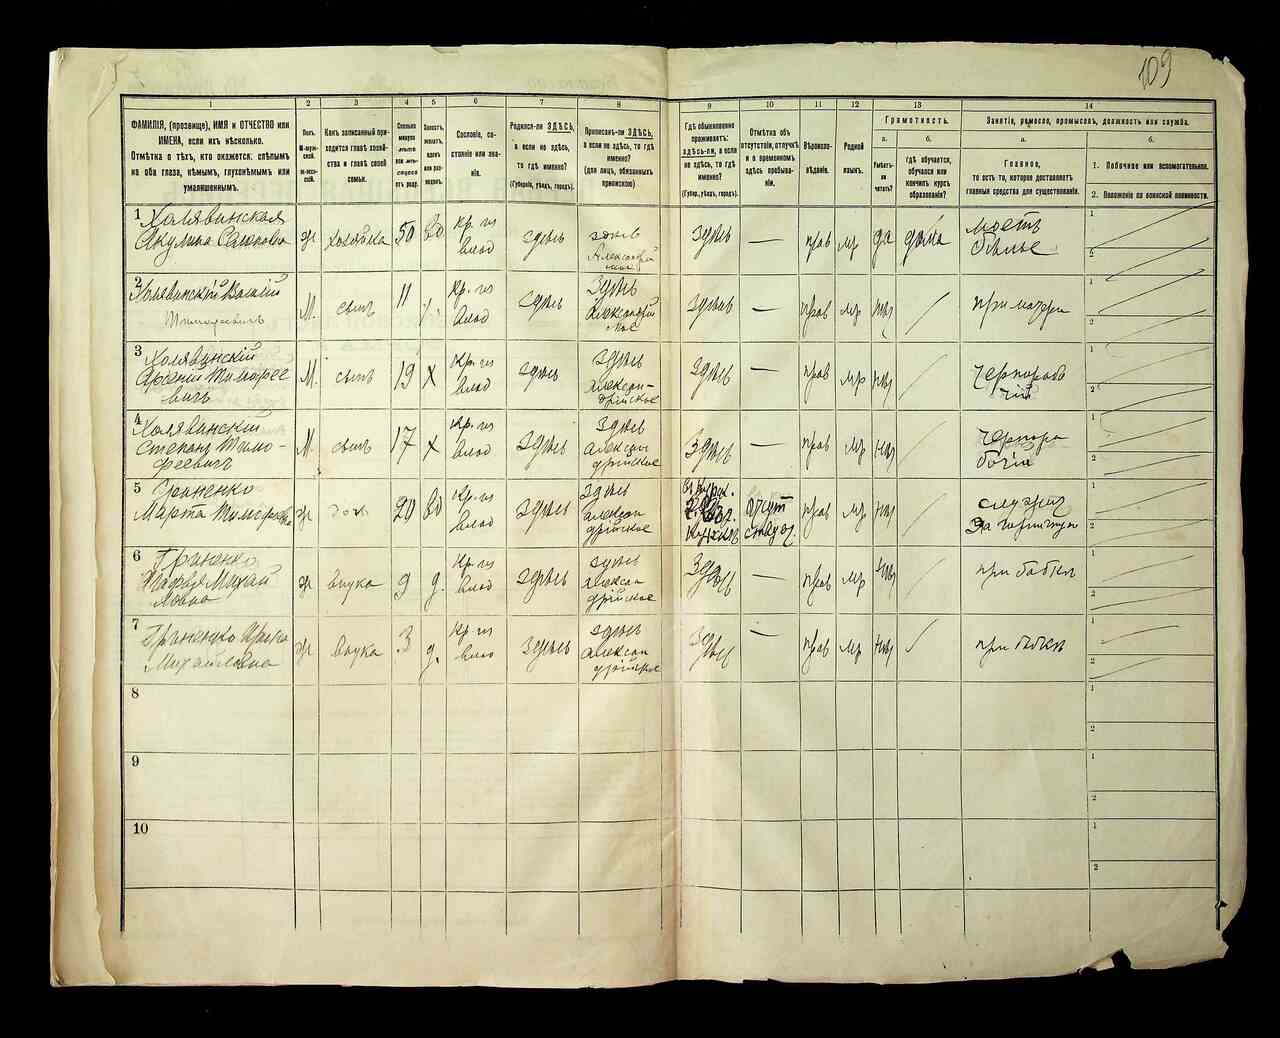 109
1
2
3
4
5
6
7
8
9
10
11
12
13
14
ФАМИЛІЯ, (прозвище), ИМЯ и ОТЧЕСТВО или
ИМЕНА, если ихъ нѣсколько.
Отмѣтка о тѣхъ, кто окажется: слѣпымъ
на оба глаза, нѣмымъ, глухонѣмымъ или
умалишеннымъ.
Полъ.
М-муж-
ской.
Ж-жен-
скій.
Какъ записанный при-
ходится главѣ хозяй-
ства и главѣ своей
семьи.
Сколько
минуло
лѣтъ
или мѣ-
сяцевъ
отъ роду.
Холостъ,
женатъ,
вдовъ
или раз-
веденъ.
Сословіе, со-
стояніе или зва-
ніе.
Родился-ли ЗДѢСЬ,
а если не здѣсь,
то гдѣ именно?
(Губернія, уѣздъ, городъ).
Приписанъ-ли ЗДѢСЬ,
а если не здѣсь, то гдѣ
именно?
(для лицъ, обязанныхъ
припискою)
Гдѣ обыкновенно
проживаетъ:
здѣсь-ли, а если
не здѣсь, то гдѣ
именно?
(Губер., уѣздъ, городъ).
Отмѣтка объ
отсутствіи, отлучкѣ
и о временномъ
здѣсь пребыва-
ніи.
Вѣроиспо-
вѣданіе.
Родной
языкъ.
Грамотность.
а.
б.
Умѣетъ-
ли
читать?
гдѣ обучается,
обучался или
кончилъ курсъ
образованія?
Занятіе, ремесло, промыселъ, должность или служба.
а.
б.
Главное,
то есть то, которое доставляетъ
главныя средства для существованія.
1. Побочное или вспомогательное.
2. Положеніе по воинской повинности.
1
Холявинская
Акулина
ж
хозяйка
50
вд
кр. из
влад
здѣсь
здѣсь
здѣсь
—
прав
мр
да
дома
моетъ
бѣлье
1
2
2
Холявинскій Василій
Тимофеевичъ
М.
сынъ
11
кр. из
влад
здѣсь
здѣсь
здѣсь
—
прав
мр
при матери
1
2
3
Холявинскій
Арсеній Тимофее
вичъ
М.
сынъ
19
х
кр. из
влад
здѣсь
здѣсь
алексан-
дрійское
здѣсь
—
прав
мр
чернорабо
чій
1
2
4
Холявинскій
Степанъ Тимо-
феевичъ
М
сынъ
17
х
кр. из
влад
здѣсь
здѣсь
алексан
дрійское
здѣсь
—
прав
мр
чернора
бочій
1
2
5
Гриненко
Марта
ж
дочь
20
вд
кр. из
влад
здѣсь
здѣсь
алексан
дрійское
отсут
прав
мр
служит
за горничную
1
2
6
Гриненко
Михай
ловна
ж
внука
9
д.
кр. из
влад
здѣсь
здѣсь
алексан
дрійское
здѣсь
—
прав
мр
при бабкѣ
1
2
7
Гриненко
Михайловна
ж
внука
3
д.
кр из
влад
здѣсь
здѣсь
алексан
дрійское
здѣсь
—
прав
мр
при бабкѣ
1
2
8
1
2
9
1
2
10
1
2